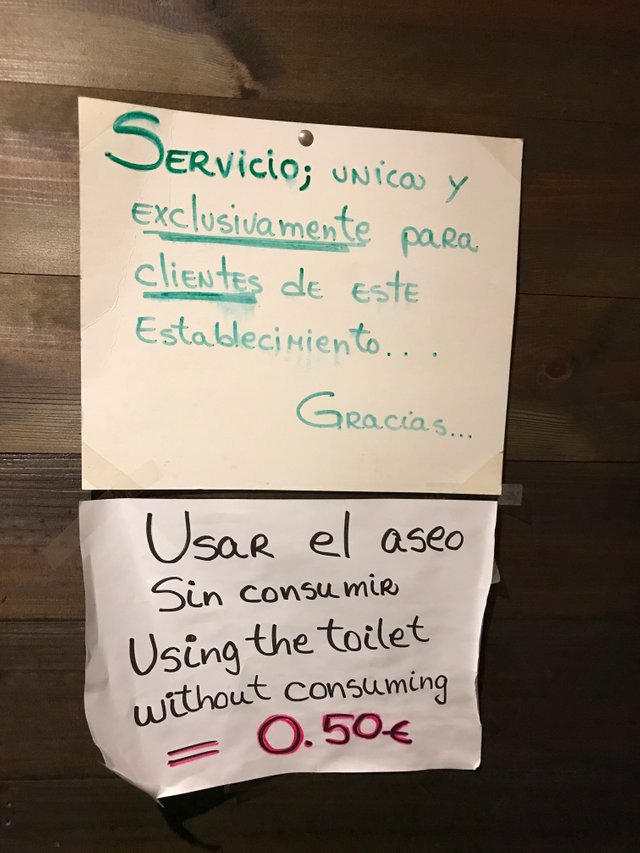 Servicio; unica y
exclusivamente para
clientes de este
Establecimiento...
Gracias...
Usar el aseo
Sin consumir
Using the toilet
without consuming
= 0.50€